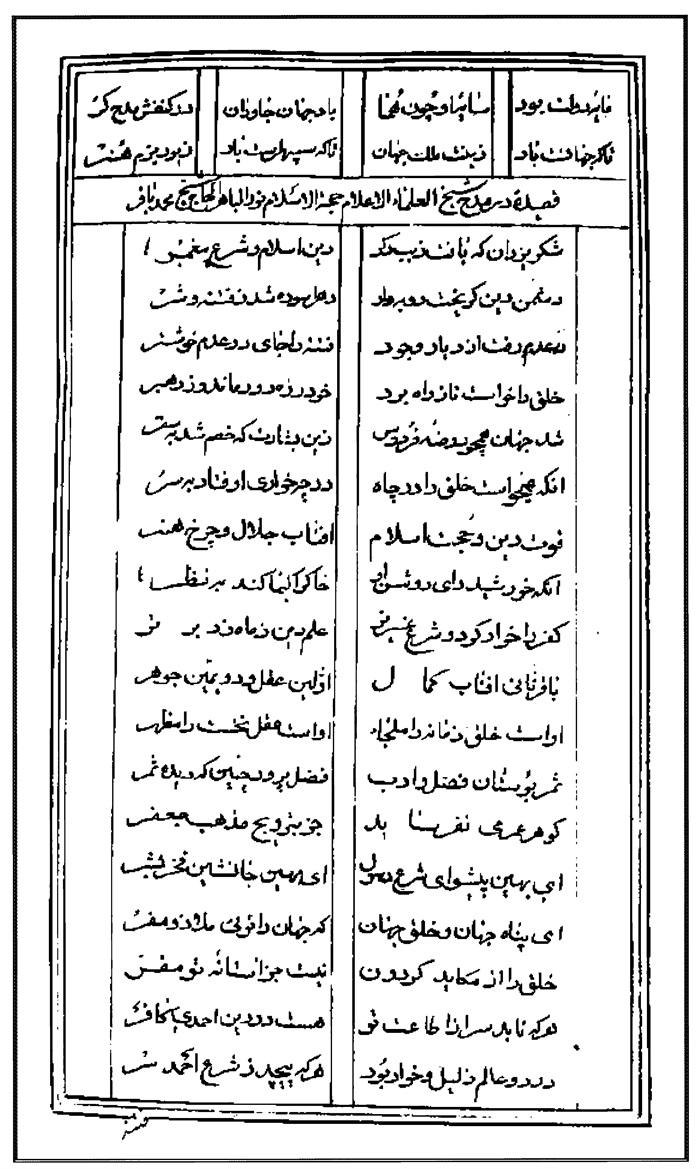 سایه او چون هما فایز دولت بود
در کنفش مدح کر باد جهان جاودان
زینت ملک جهان تا که جهانست باد
زیور بزم هنر تا که سپهرست باد
قصیده در مدح شیخ العلماء الاعلام حجة الاسلام نور الباهر الحاج شیخ محمد باقر
شکر یزدان که یافت زیب دگر دین اسلام و شرع پیغمبر
دشمن دین گریخت رو به دهر سوده شد ز فتنه و شر
به عدم رفت از دیار وجود فتنه را جای در عدم خوشتر
خلق را خواست تا ز راه برد خود ز ره دور ماند و ز رهبر
شد جهان همچو روضه فردوس زین بشارت که خصم شد به سقر
انکه میخواست خلق را در چاه در چه خواری اوفتاد به سر
قوت دین و حجت اسلام افتاب جلال و چرخ هنر
انکه خورشید رای روشن او خاک را کیمیا کند به نظر
کفر را خوار کرد و شرع عزیز علم دین ز ماه زد بر تر
باقر ثانی افتاب کمال اولین عقل و دویمین جوهر
اوست خلق زمانه را ملجاء اوست عقل نخست را مظهر
ثمر بوستان فضل و ادب فضل پرور چنین که دیده ثمر
گوهر عمر می نفرساید جز بترویج مذهب جعفر
ای بهین پیشوای شرع رسول ای مهین جانشین فخر بشر
ای پناه جهان و خلق جهان که جهان را توئی ملاذ و مفر
خلق را از مکاید گردون نیست جز آستانه تو مفر
هر که تابد سر از اطاعت تو هست در دین احمدی کافر
در دو عالم ذلیل و خوار بود هر که پیچد ز شرع احمد سر